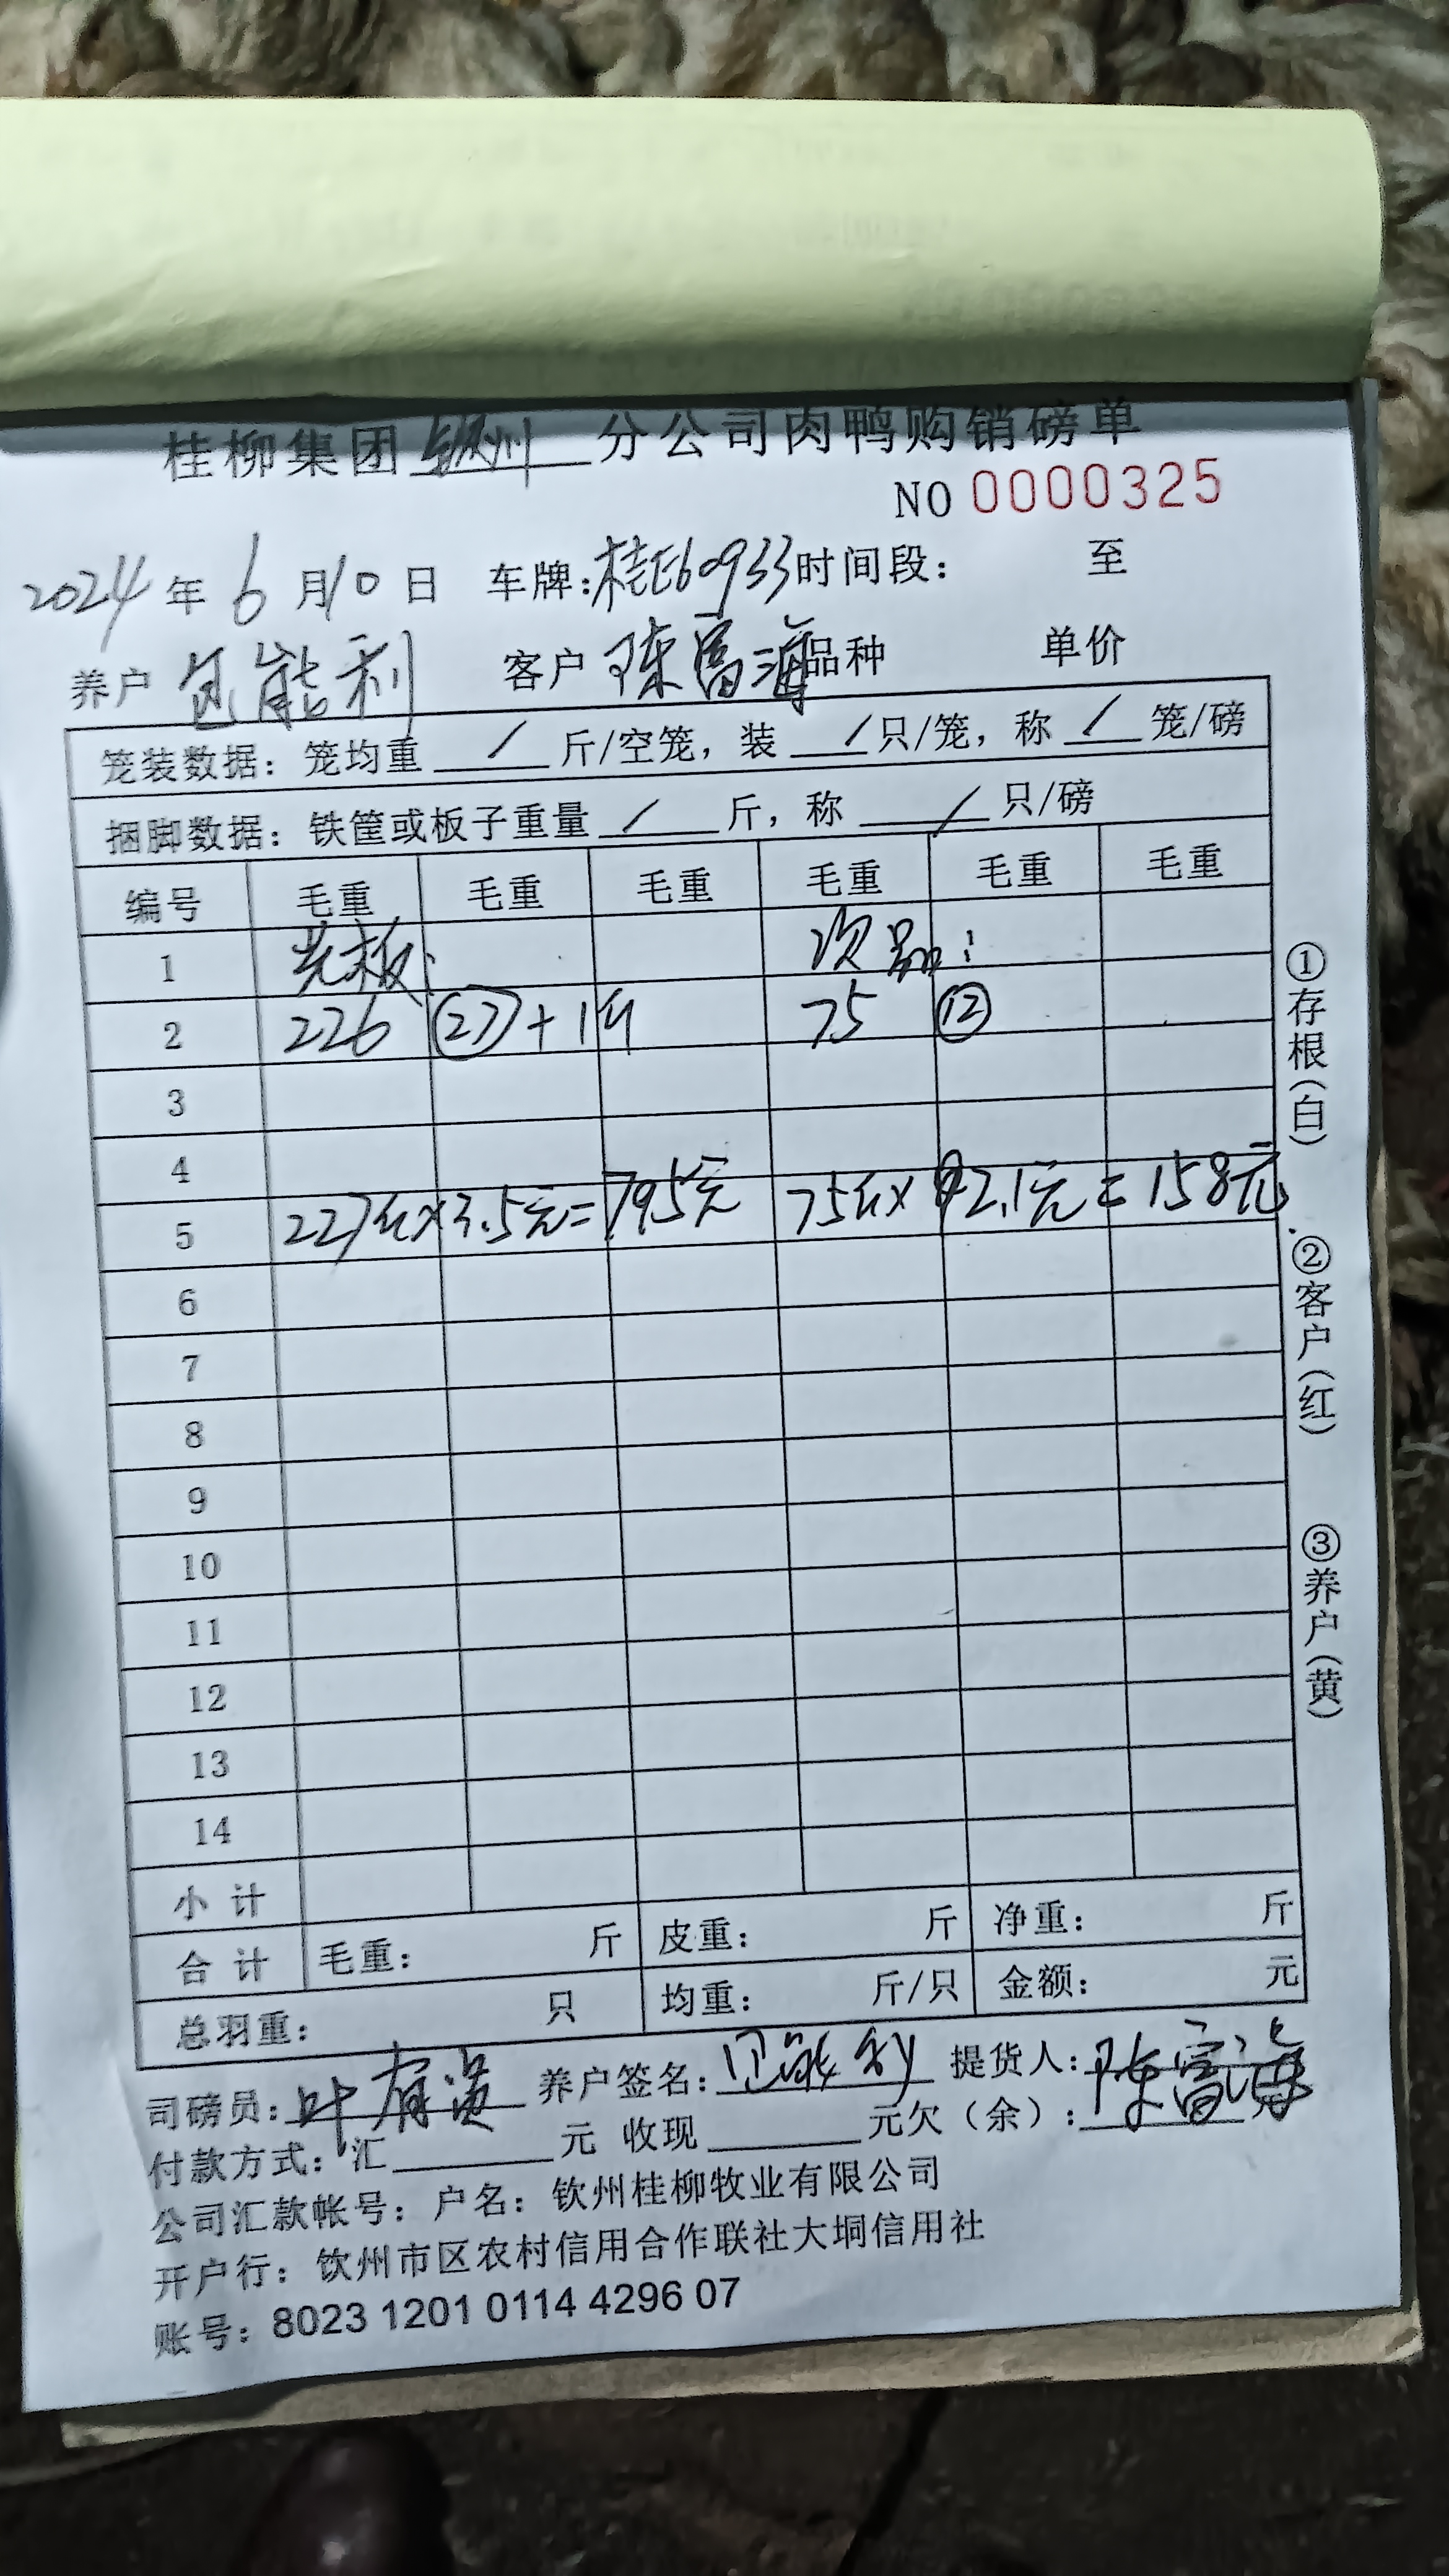 桂柳集团钦州分公司肉鸭购销磅单
NO 0000325
2024年6月10日 车牌:桂E60933时间段: 至
养户 包能利 客户 陈富海 品种 单价
笼装数据: 笼均重 / 斤/空笼, 装 / 只/笼, 称 / 笼/磅
捆脚数据: 铁筐或板子重量 / 斤, 称 / 只/磅
编号 毛重 毛重 毛重 毛重 毛重 毛重
1 光板: 次品:
2 226 ㉗+1斤 75 ⑫
3
4
5 227斤×3.5元=795元 75斤×2.1元=158元
6
7
8
9
10
11
12
13
14
小计
合计 毛重: 斤 皮重: 斤 净重: 斤
总羽重: 只 均重: 斤/只 金额: 元
司磅员: 叶 养户签名: 包能利 提货人: 陈富海
付款方式: 汇 元 收现 元欠(余):
公司汇款帐号: 户名: 钦州桂柳牧业有限公司
开户行: 钦州市区农村信用合作联社大垌信用社
账号: 8023 1201 0114 4296 07
①存根(白)
②客户(红)
③养户(黄)